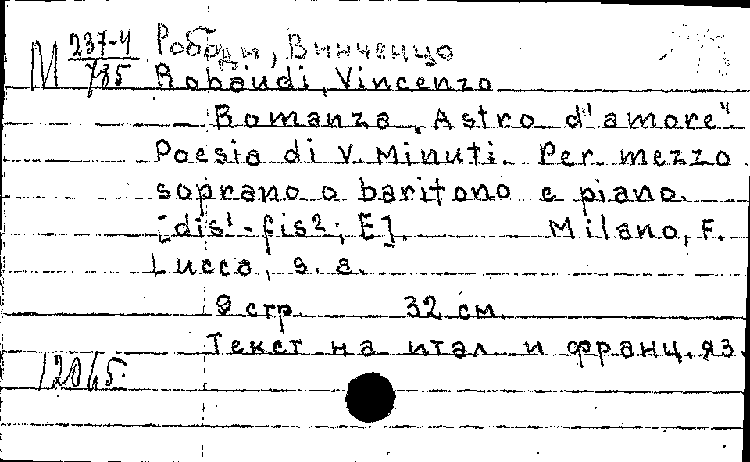 М 237-4/785
Рободи, Винченцо
Robaudi, Vincenzo
Romanza „Astro d'amore"
Poesia di V. Minuti. Per mezzo
soprano o baritono e piano.
[dis¹-fis²; E]. Milano, F.
Lucca, s. a.
9 стр. 32 см.
Текст на итал и франц. яз.